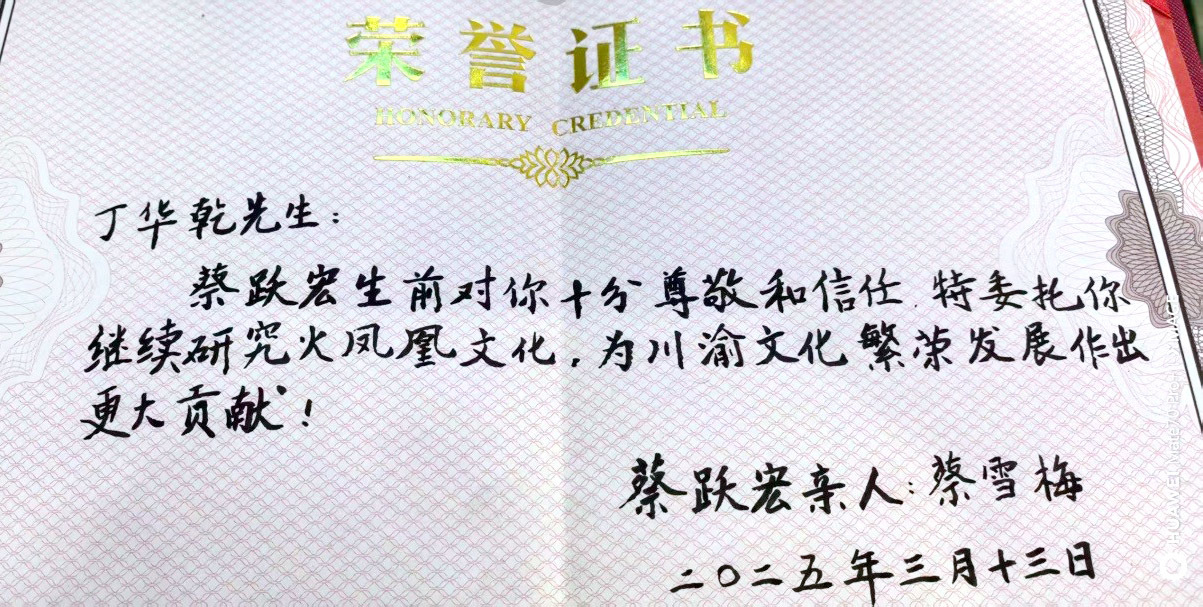 荣誉证书
HONORARY CREDENTIAL
丁华乾先生：
蔡跃宏生前对你十分尊敬和信任.特委托你
继续研究火凤凰文化，为川渝文化繁荣发展作出
更大贡献！
蔡跃宏亲人：蔡雪梅
二〇二五年三月十三日